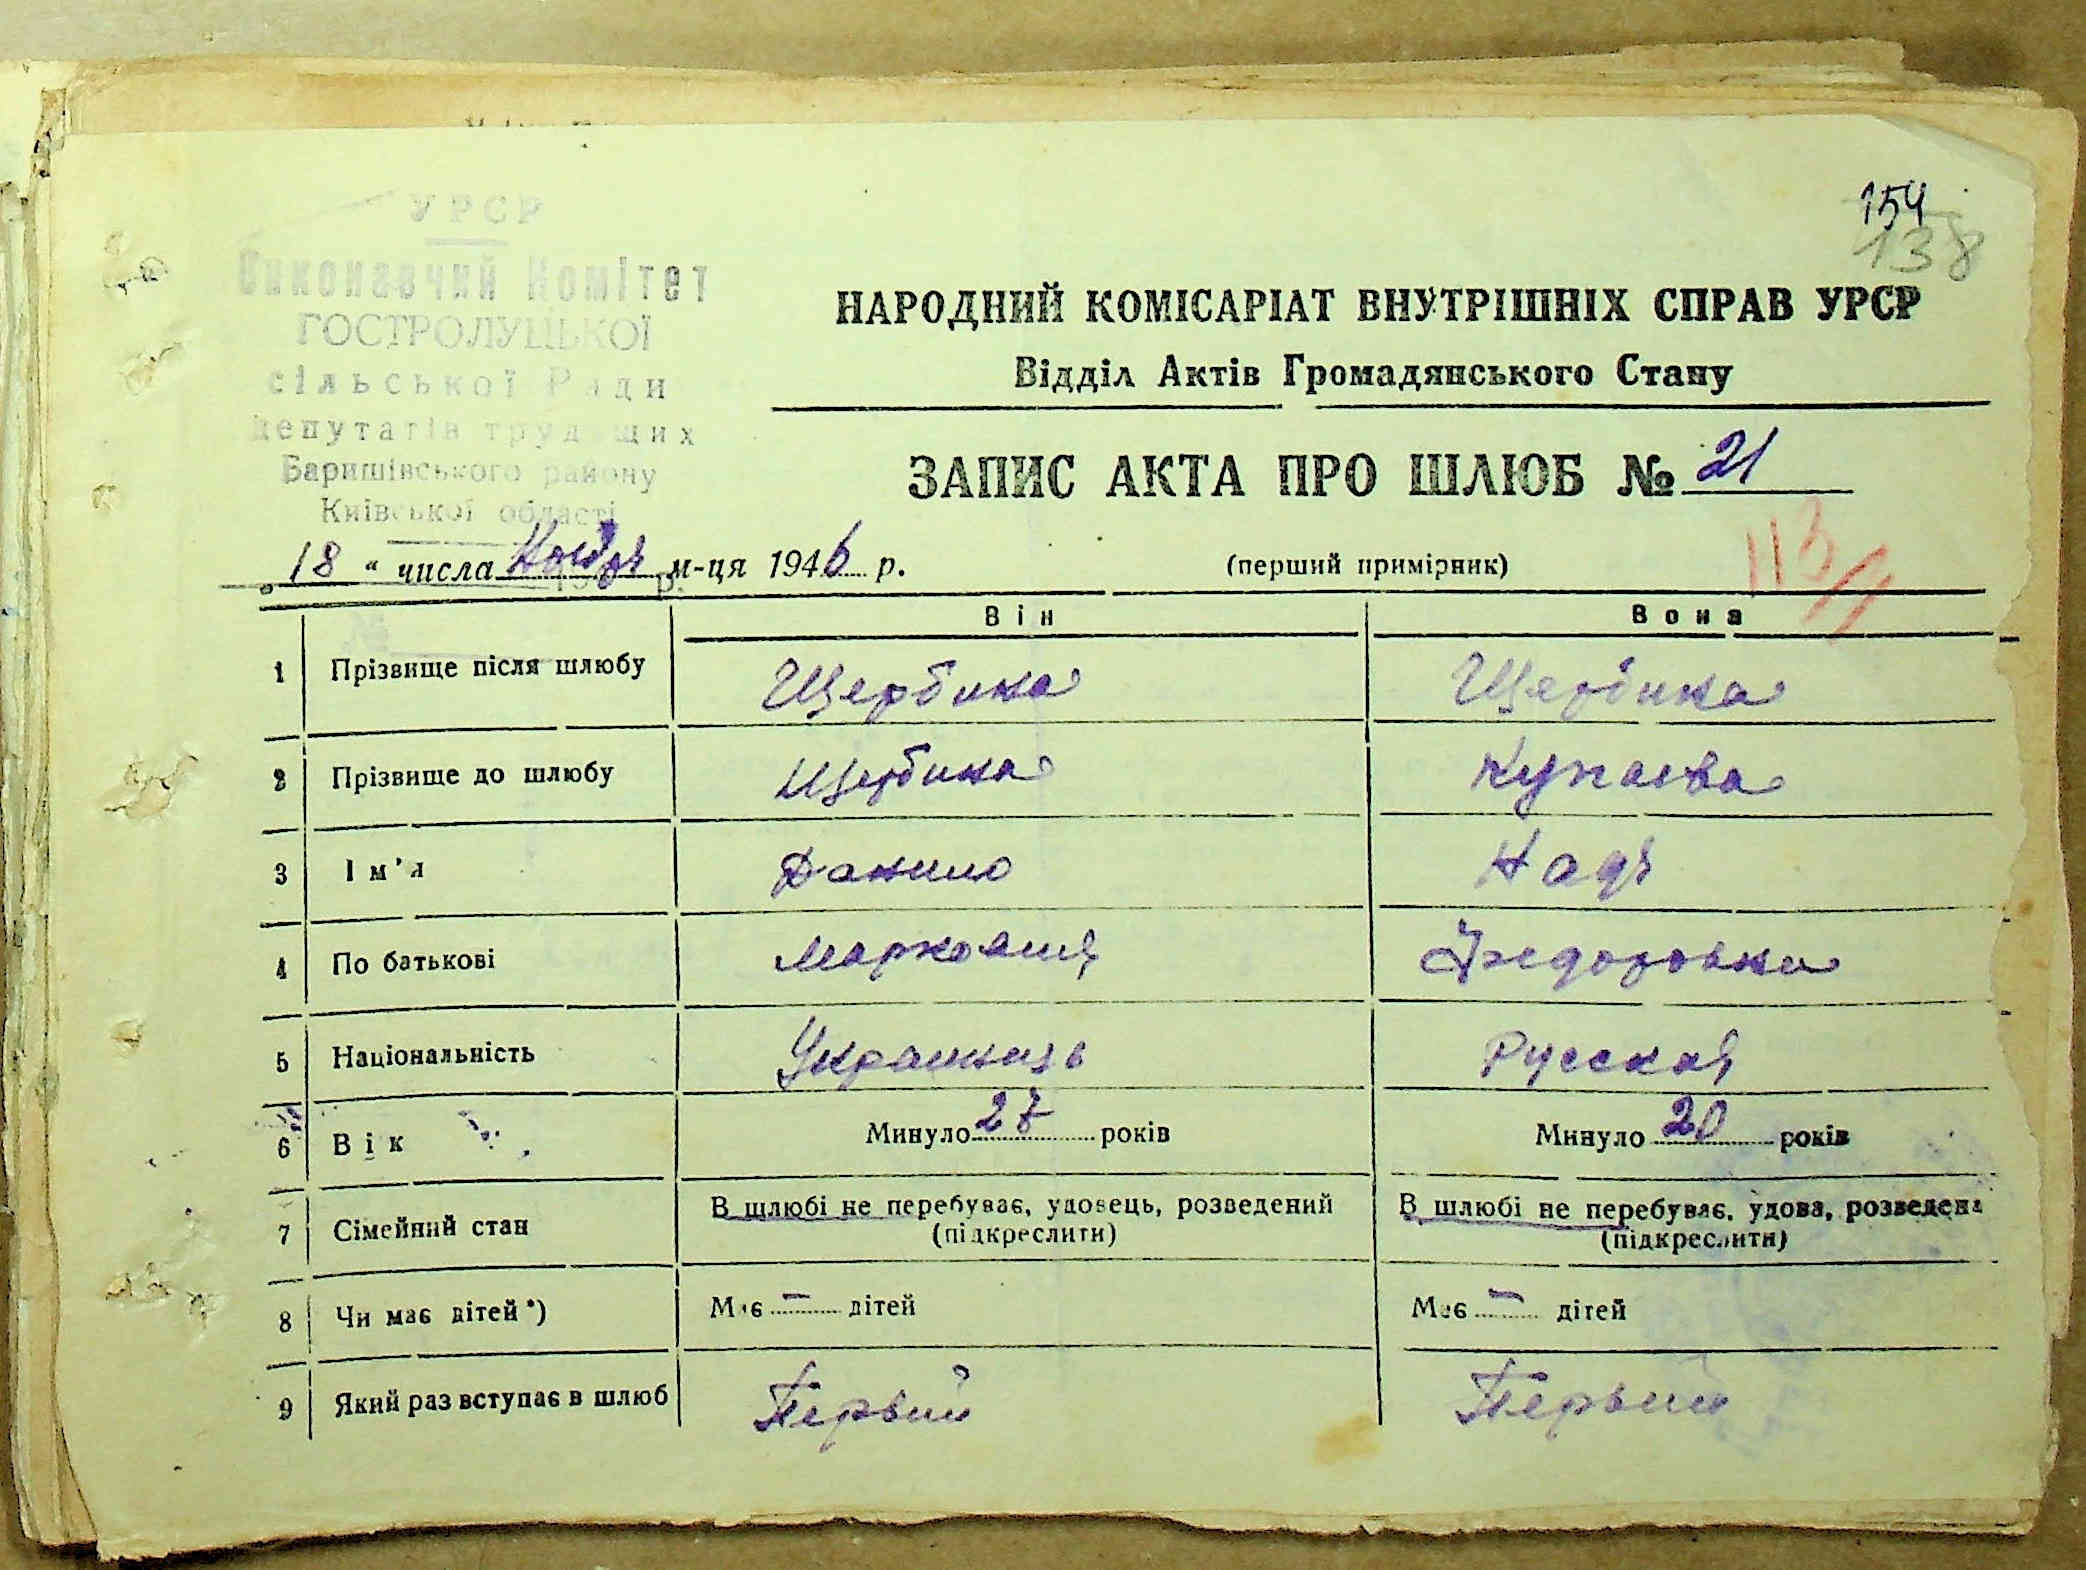 154
138
УРСР
Виконавчий Комітет
ГОСТРОЛУЦЬКОЇ
сільської Ради
депутатів трудящих
Баришівського району
Київської області
НАРОДНИЙ КОМІСАРІАТ ВНУТРІШНІХ СПРАВ УРСР
Відділ Актів Громадянського Стану
ЗАПИС АКТА ПРО ШЛЮБ № 21
„18“ числа Ноября м-ця 1946 р.
(перший примірник)
113/
Він Вона
1 Прізвище після шлюбу Щербина Щербина
2 Прізвище до шлюбу Щербина Купаева
3 Ім'я Данило Надя
4 По батькові Маркович Федоровна
5 Національність Украинець Русская
6 Вік Минуло 27 років Минуло 20 років
7 Сімейний стан В шлюбі не перебуває, удовець, розведений (підкреслити) В шлюбі не перебуває, удова, розведена (підкреслити)
8 Чи має дітей*) Має — дітей Має — дітей
9 Який раз вступає в шлюб Первий Первий